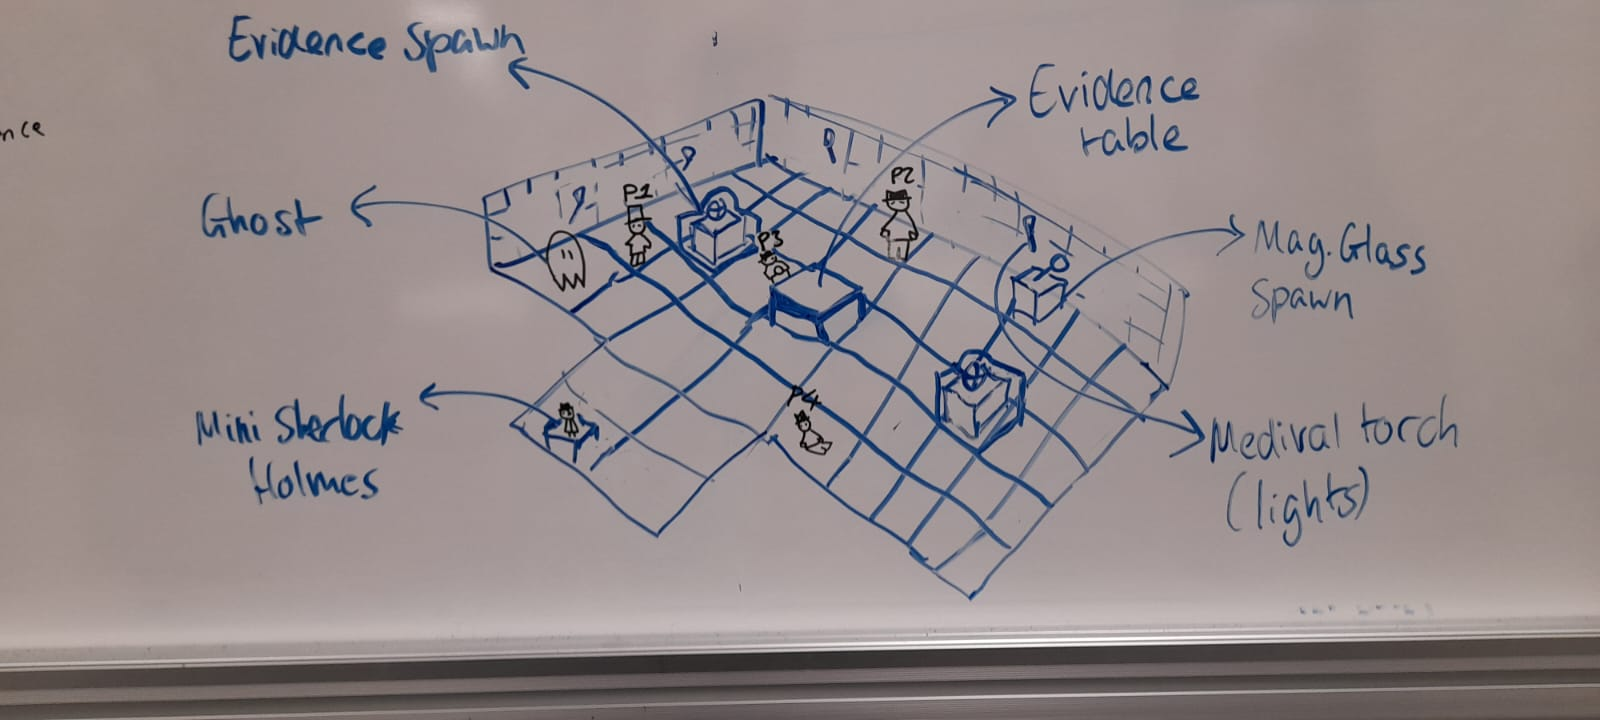 Evidence Spawn
Evidence
table
nce
P2
P1
Ghost
P3
Mag. Glass
Spawn
P4
Mini Sherlock
Holmes
Medival torch
(lights)